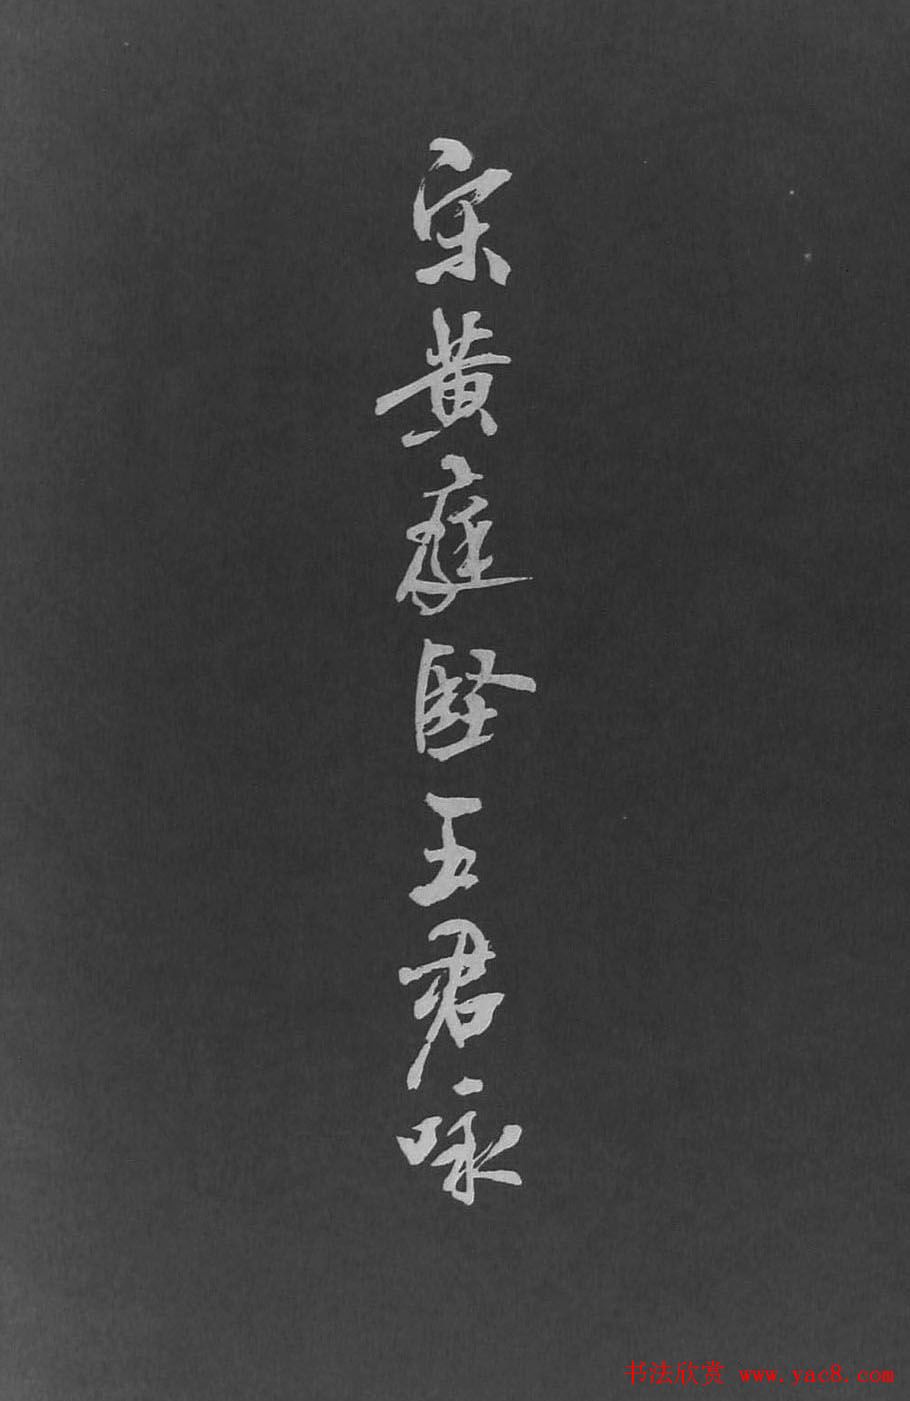 宋黄庭堅五君咏
书法欣赏 www.yac8.com